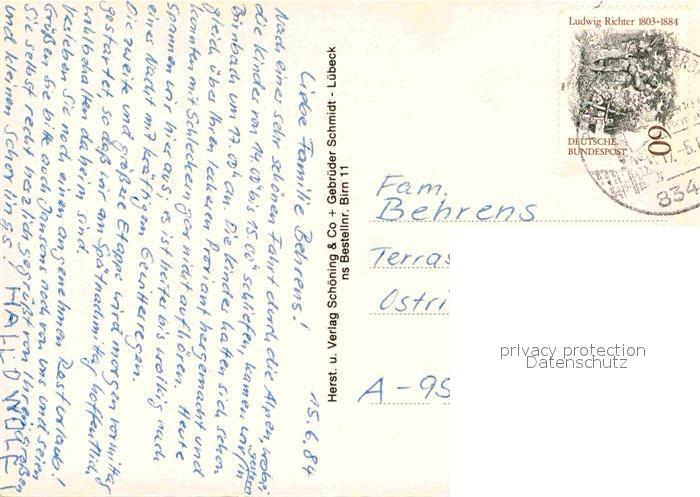 Liebe Familie Behrens! 15.6.84
Nach einer sehr schönen Fahrt durch die Alpen, wobei
die Kinder von 14.00 bis 15.00 schliefen, kamen wir in
Birnbach um 17.00 an. Die Kinder hatten sich schon
gleich über Ihren leckeren Proviant hergemacht und
konnten mit Schleckern gar nicht aufhören. Heute
spannen wir hier aus; es ist heute bis wolkig nach
einer Nacht mit kräftigen Gewitterregen.
Die zweite und größere Etappe wird morgen vormittag
gestartet, so daß wir am Spätnachmittag hoffentlich
wohlbehalten daheim sind.
Sie noch einen angenehmen Resturlaub!
Grüßen Sie bitte auch Jansons noch von uns und seien
Sie selbst recht herzlich gegrüßt von Ihren großen
und kleinen Schorlings! HALLO WOLF!
Herst. u. Verlag Schöning & Co + Gebrüder Schmidt - Lübeck
ns Bestellnr. Birn 11
Ludwig Richter 1803-1884
DEUTSCHE
BUNDESPOST
60
834
Fam.
Behrens
Terras
Ostri
A-95
privacy protection
Datenschutz